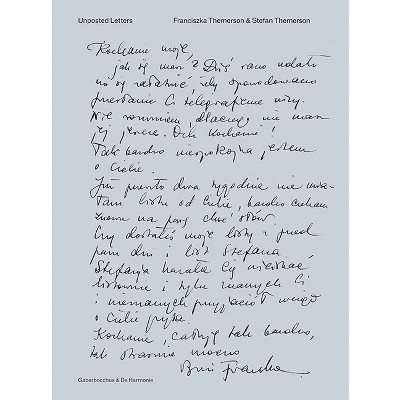 Unposted Letters
Franciszka Themerson & Stefan Themerson
Kochanie moje,
jak się masz? Dziś rano udało
mi się załatwić, żeby spowodowano
przesłanie Ci telegraficzne wizy.
Nie rozumiem, dlaczego nie masz
jej jeszcze. Och kochanie!
Tak bardzo niespokojna jestem
o Ciebie.
Już prawie dwa tygodnie nie mia-
łam listu od Ciebie, bardzo czekam
znowu na parę choć słów.
Czy dostałeś moje listy z przed
paru dni i list Stefana
kazała Cię uściskać
listownie i tylu znanych Ci
i nieznanych przyjaciół wciąż
o Ciebie pyta.
Kochanie, całuję tak bardzo,
tak strasznie mocno
Franka
Gaberbocchus & De Harmonie